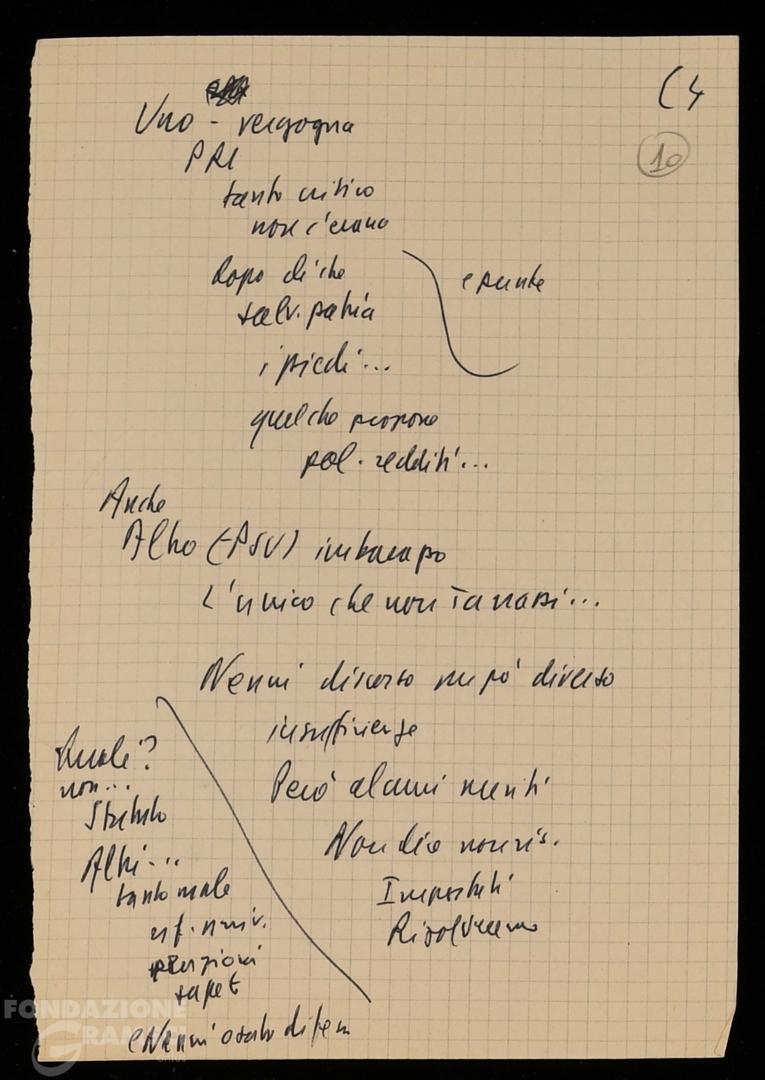 C4
10
Uno - vergogna
PRI
tanto critico
non c'erano
dopo di che
salv. patria
i piedi...
e
quel che propone
pol. redditi...
Anche
Altro (-PSU) imbarazzo
L'unico che non Tanassi...
Nenni discorso un po' diverso
insufficienze
Però alcuni meriti
Non dico non ris.
Impostati
Risolveremo
Quali?
non...
Statuto
Altri...
tanto male
rif. univ.
pensioni
sapet
e Nenni
FONDAZIONE
GRAMSCI